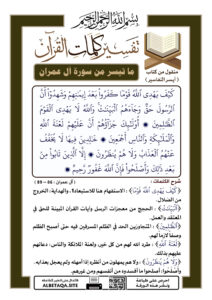 بسم الله الرحمن الرحيم
تفسير كلمات القرآن
منقول من كتاب
( أيسر التفاسير )
ما تيسر من سورة آل عمران
كَيْفَ يَهْدِي اللَّهُ قَوْمًا كَفَرُوا بَعْدَ إِيمَانِهِمْ وَشَهِدُوا أَنَّ
الرَّسُولَ حَقٌّ وَجَاءَهُمُ الْبَيِّنَاتُ وَاللَّهُ لَا يَهْدِي الْقَوْمَ
الظَّالِمِينَ أُولَئِكَ جَزَاؤُهُمْ أَنَّ عَلَيْهِمْ لَعْنَةَ اللَّهِ
وَالْمَلَائِكَةِ وَالنَّاسِ أَجْمَعِينَ خَالِدِينَ فِيهَا لَا يُخَفَّفُ
عَنْهُمُ الْعَذَابُ وَلَا هُمْ يُنْظَرُونَ إِلَّا الَّذِينَ تَابُوا مِنْ
بَعْدِ ذَلِكَ وَأَصْلَحُوا فَإِنَّ اللَّهَ غَفُورٌ رَحِيمٌ
آل عمران : 86 - 89
شرح الكلمات :
﴿ كَيْفَ يَهْدِي اللَّهُ قَوْمًا ﴾ : الاستفهام هنا للاستبعاد، والهداية : الخروج
من الضلال.
﴿ الْبَيِّنَاتُ ﴾ : الحجج من معجزات الرسل وآيات القرآن المبينة للحق في
المعتقد والعمل.
﴿ الظَّالِمِينَ ﴾ : المتجاوزين الحد في الظلم المسرفين فيه حتى أصبح الظلم
وصفا لازما لهم.
﴿ لَعْنَةَ اللَّهِ ﴾ : طرد الله لهم من كل خير، ولعنة الملائكة والناس: دعائهم
عليهم بذلك.
﴿ وَلَا هُمْ يُنْظَرُونَ ﴾ : ولا هم يمهلون من أنظره إذا أمهله ولم يعجل بعذابه.
﴿ وَأَصْلَحُوا ﴾ : أصلحوا ما أفسدوه من أنفسهم ومن غيرهم.
ALBETAQA.SITE